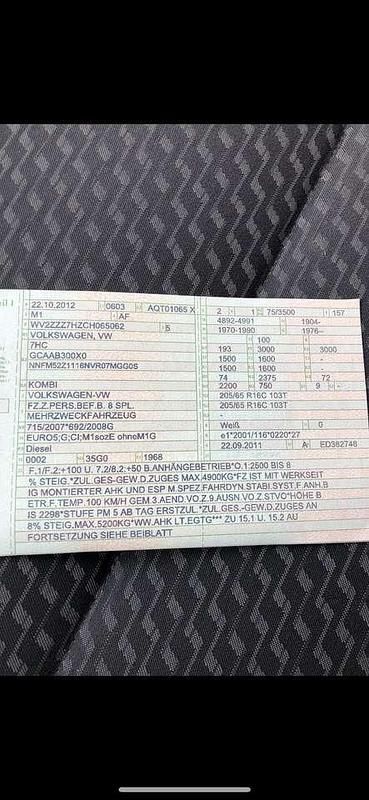 22.10.2012 0603 AQT01065 X
M1 AF
WV2ZZZ7HZCH065062 5
VOLKSWAGEN, VW
7HC
GCAAB300X0
NNFM52Z1116NVR07MGG0S
KOMBI
VOLKSWAGEN-VW
FZ.Z.PERS.BEF.B. 8 SPL.
MEHRZWECKFAHRZEUG
715/2007*692/2008G
EURO5;G;CI;M1sozE ohneM1G
Diesel
0002 35G0 1968
2 1 75/3500 157
4892-4991 1904-
1970-1990 1976-
100
193 3000 3000
1500 1600 -
1500 1600
74 2375 72
2200 750 9 -
205/65 R16C 103T
205/65 R16C 103T
Weiß 0
e1*2001/116*0220*27
22.09.2011 A ED382748
F.1/F.2:+100 U. 7.2/8.2:+50 B.ANHÄNGEBETRIEB*O.1:2500 BIS 8
% STEIG.*ZUL.GES-GEW.D.ZUGES MAX.4900KG*FZ IST MIT WERKSEIT
IG MONTIERTER AHK UND ESP M.SPEZ.FAHRDYN.STABI.SYST.F.ANH.B
ETR.F.TEMP.100 KM/H GEM.3.AEND.VO.Z.9.AUSN.VO.Z.STVO*HÖHE B
IS 2298*STUFE PM 5 AB TAG ERSTZUL.*ZUL.GES.-GEW.D.ZUGES AN
8% STEIG.MAX.5200KG*WW.AHK LT.EGTG*** ZU 15.1 U. 15.2 AU
FORTSETZUNG SIEHE BEIBLATT